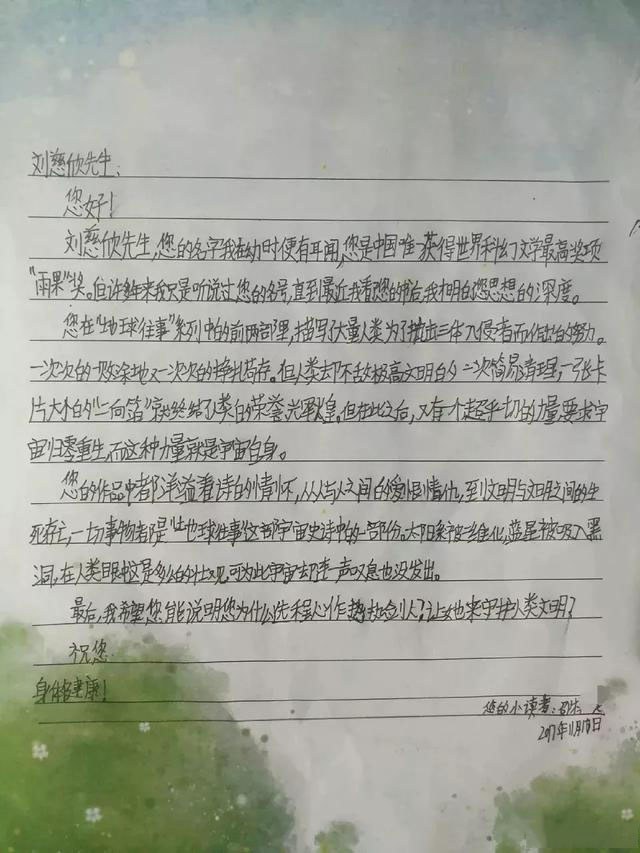 刘慈欣先生：
您好！
刘慈欣先生，您的名字我在幼时便有耳闻，您是中国唯一获得世界科幻文学最高奖项
"雨果"奖。但许多年来我只是听说过您的名号，直到最近我看您的书后，我才明白您思想的深度。
您在"地球往事"系列中的前两部里，描写了大量人类为了抵抗三体入侵者而作出的努力。
一次次的一败涂地又一次次的挣扎苟存。但人类却不敌极高文明的一次简易清理，一张卡
片大小的"二向箔"就终结了人类的荣誉光辉。但在此之后，又有一个超乎一切的力量要求宇
宙归零重生，而这种力量就是宇宙自身。
您的作品中都洋溢着诗的情怀，从人与人之间的爱恨情仇，至到文明与文明之间的生
死存亡，一切事物都是"地球往事"这部宇宙史诗中的一部份。太阳系被二维化，蓝星被吸入黑
洞，在人类眼中这是多么的壮观，可为此宇宙却连一声叹息也没发出。
最后，我希望您能说明您为什么选程心作执剑人？让她来守护人类文明？
祝您
身体健康！
您的小读者：
2017年11月18日